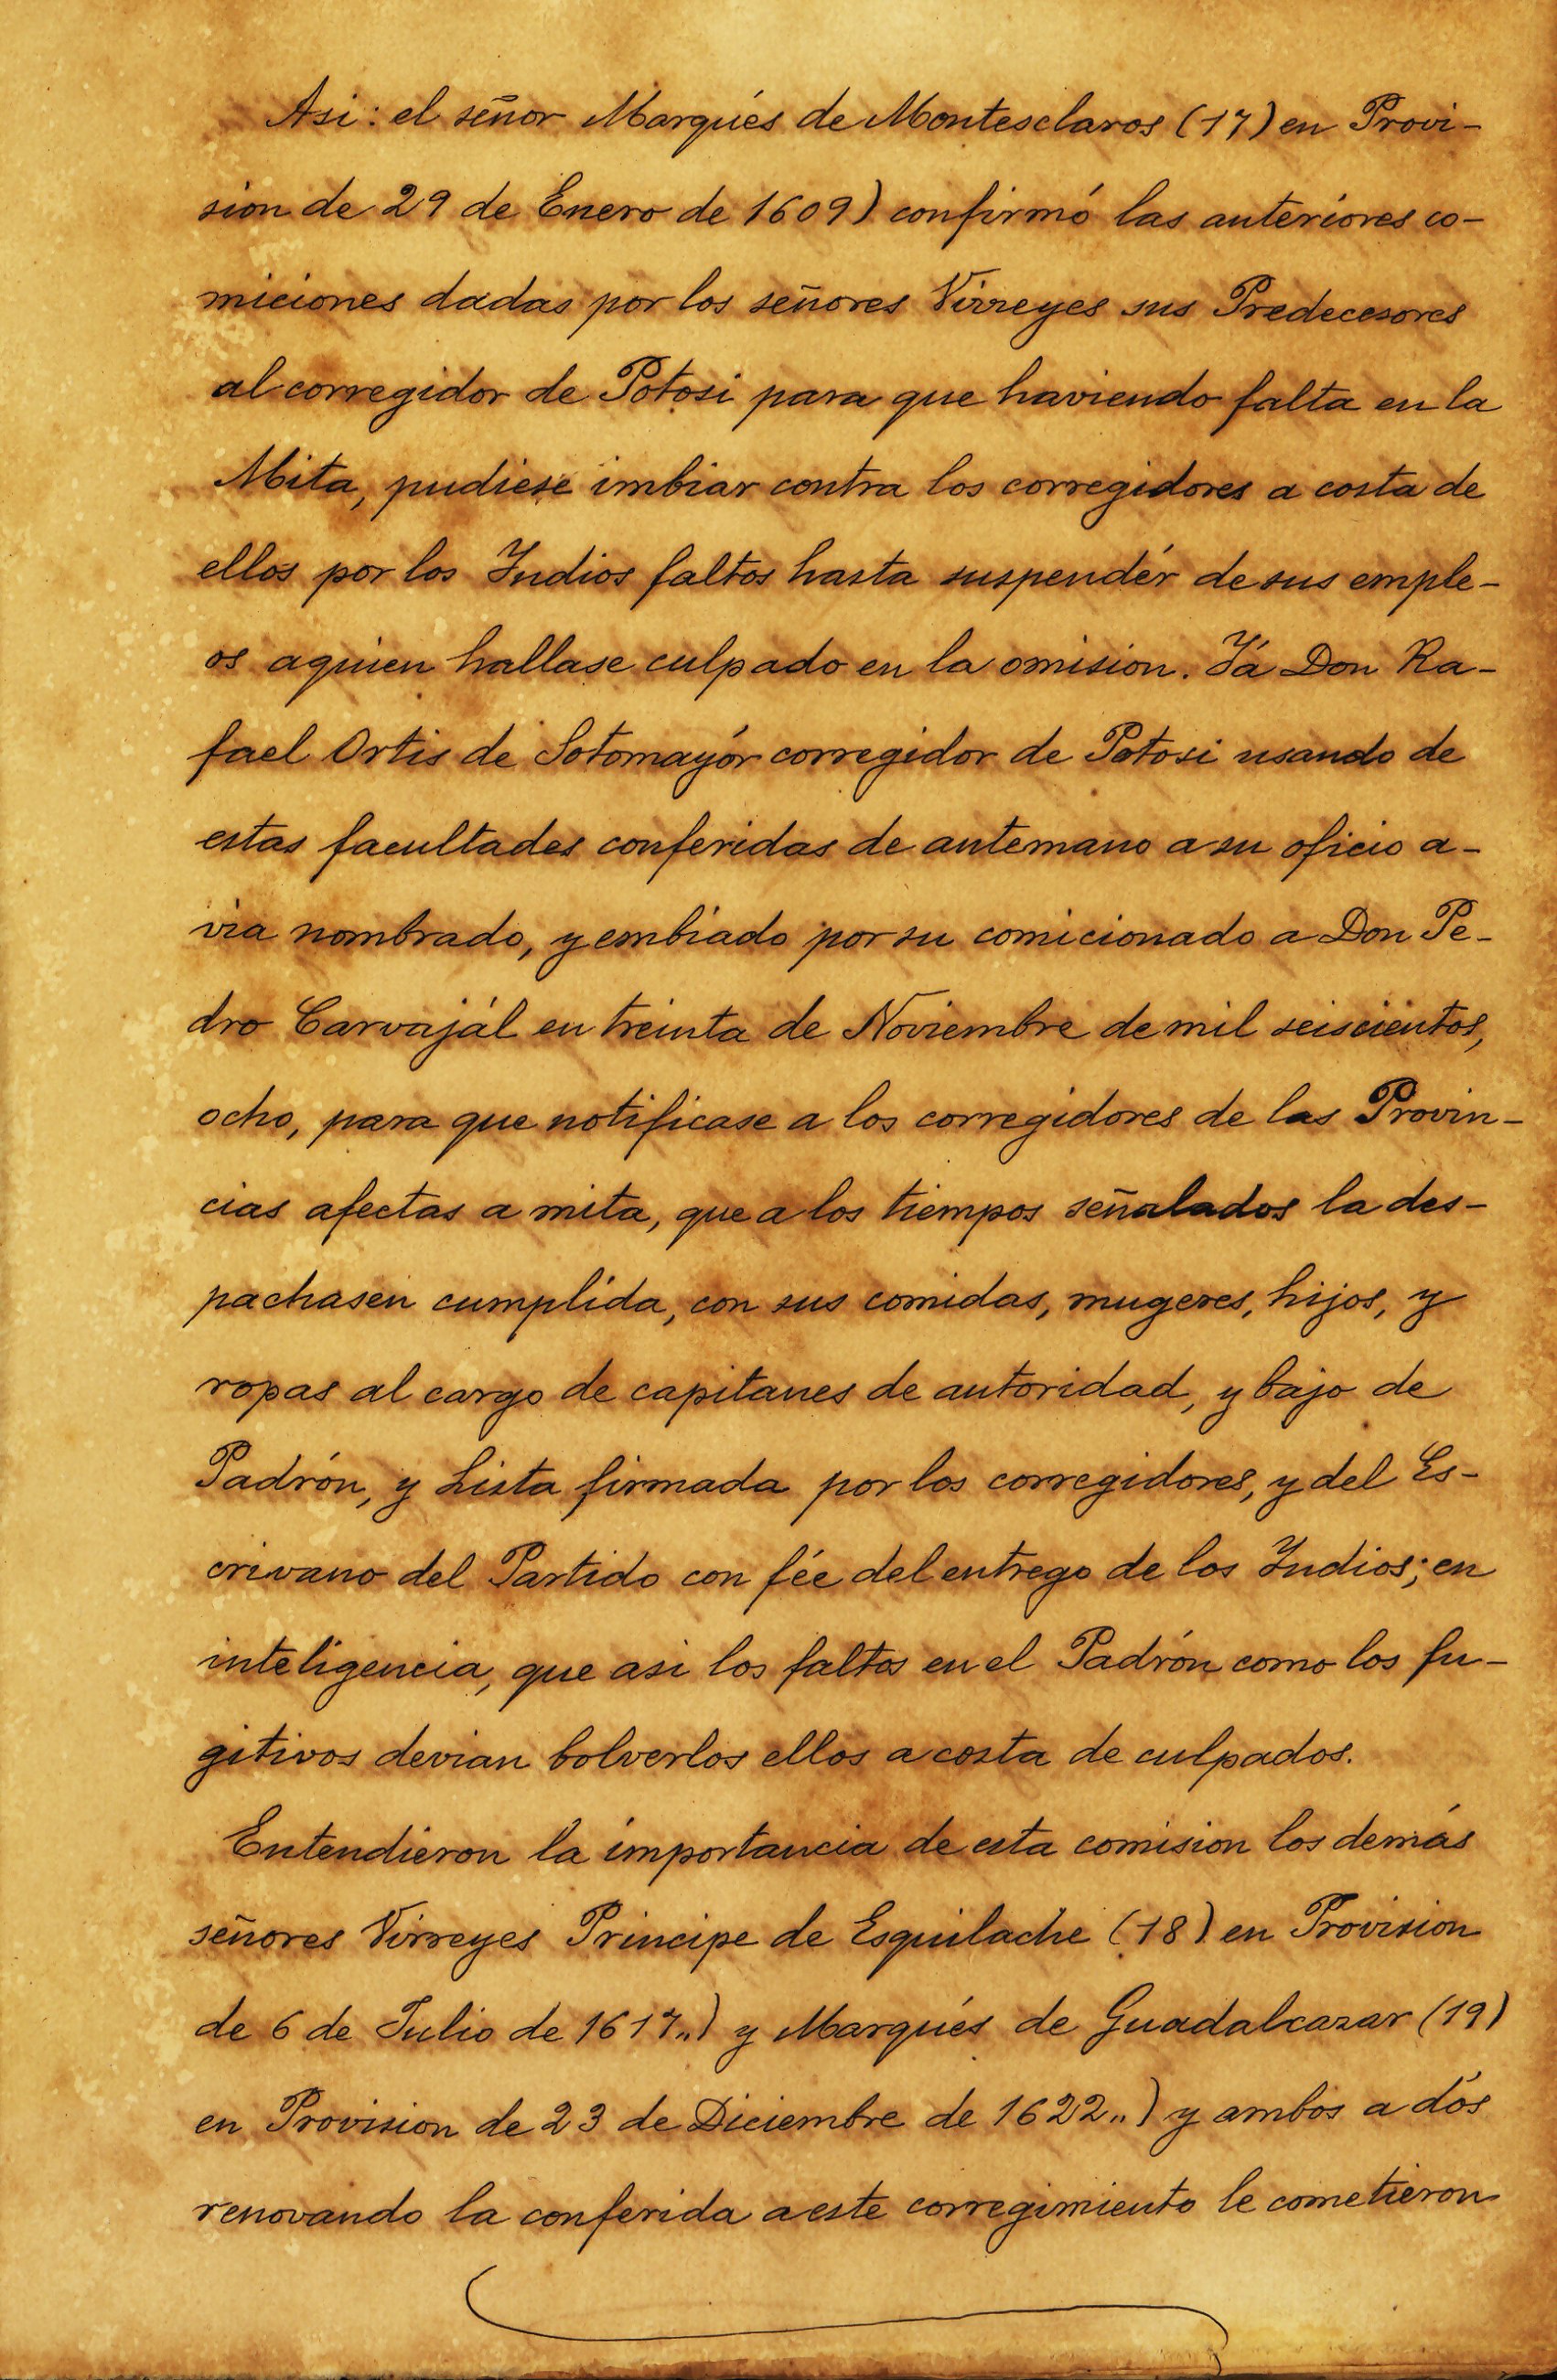 Asi: el señor Marqués de Montesclaros (17) en Provi-
sion de 29 de Enero de 1609) confirmó las anteriores co-
miciones dadas por los señores Virreyes sus Predecesores
al corregidor de Potosi para que haviendo falta en la
Mita, pudiese imbiar contra los corregidores a costa de
ellos por los Indios faltos hasta suspendér de sus emple-
os aquien hallase culpado en la omision. Yá Don Ra-
fael Ortis de Sotomayór corregidor de Potosi usando de
estas facultades conferidas de antemano a su oficio a-
via nombrado, y embiado por su comicionado a Don Pe-
dro Carvajál en treinta de Noviembre de mil seiscientos,
ocho, para que notificase a los corregidores de las Provin-
cias afectas a mita, que a los tiempos señalados la des-
pachasen cumplida, con sus comidas, mugeres, hijos, y
ropas al cargo de capitanes de autoridad, y bajo de
Padrón, y Lista firmada por los corregidores, y del Es-
crivano del Partido con fée del entrego de los Indios; en
inteligencia, que asi los faltos en el Padrón como los fu-
gitivos devian bolverlos ellos a costa de culpados.
Entendieron la importancia de esta comision los demás
señores Virreyes Principe de Esquilache (18) en Provision
de 6 de Julio de 1617..) y Marqués de Guadalcazar (19)
en Provision de 23 de Diciembre de 1622..) y ambos a dós
renovando la conferida a este corregimiento le cometieron